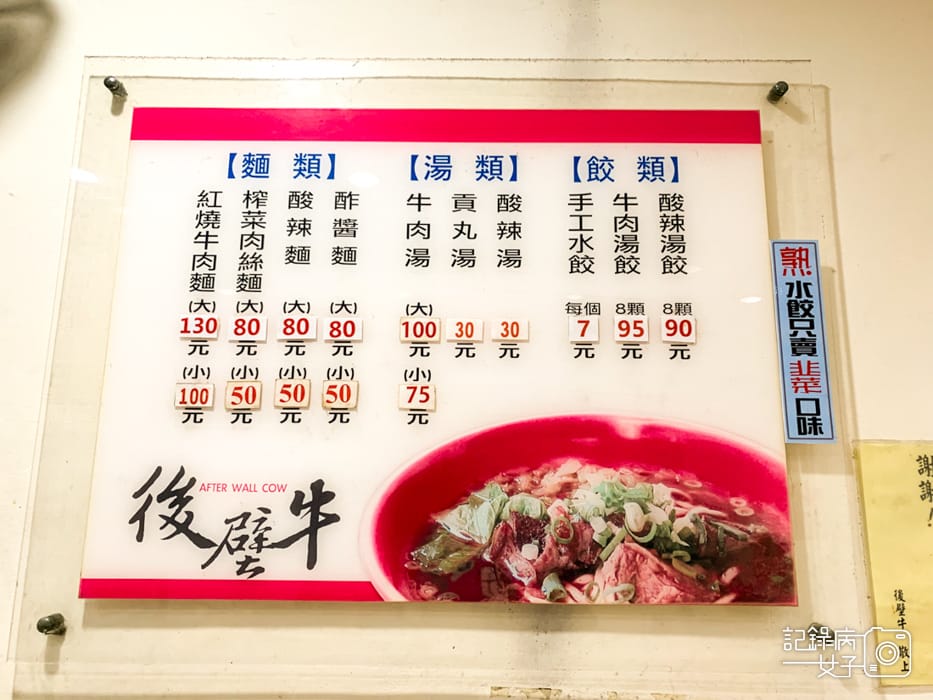 【麵 類】
紅燒牛肉麵
(大)
130
元
(小)
100
元
榨菜肉絲麵
(大)
80
元
(小)
50
元
酸辣麵
(大)
80
元
(小)
50
元
酢醬麵
(大)
80
元
(小)
50
元
【湯 類】
牛肉湯
(大)
100
元
(小)
75
元
貢丸湯
30
元
酸辣湯
30
元
【餃 類】
手工水餃
每個
7
元
牛肉湯餃
8顆
95
元
酸辣湯餃
8顆
90
元
後壁牛
AFTER WALL COW
熟水餃只賣韭菜口味
謝謝!
後壁牛 敬上
記錄病女子